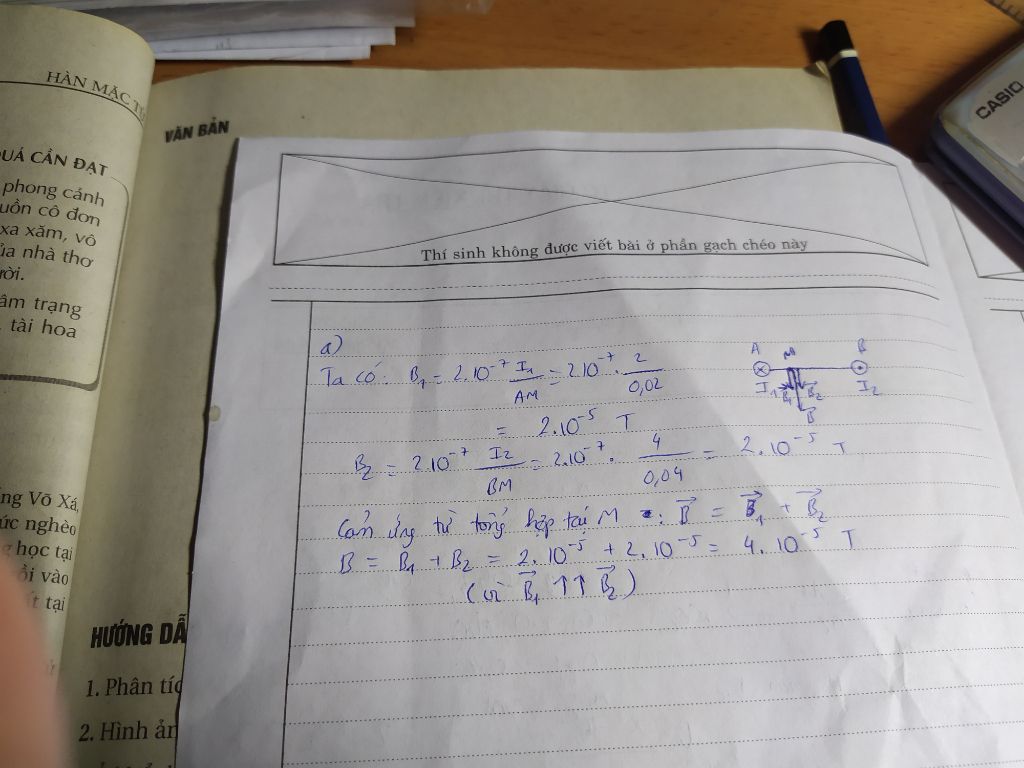 HÀN MẶC T
VĂN BẢN
QUẢ CẦN ĐẠT
phong cảnh
uồn cô đơn
xa xăm, vô
ủa nhà thơ
ời.
âm trạng
tài hoa
ng Võ Xá,
ức nghèo
học tại
ồi vào
ất tại
HƯỚNG DẪ
1. Phân tíc
2. Hình ản
CASIO
Thí sinh không được viết bài ở phần gạch chéo này
a)
Ta có: B₁ = 2.10⁻⁷ I₁/AM = 2.10⁻⁷ . 2/0,02
= 2.10⁻⁵ T
B₂ = 2.10⁻⁷ I₂/BM = 2.10⁻⁷ . 4/0,04 = 2.10⁻⁵ T
Cảm ứng từ tổng hợp tại M : B⃗ = B⃗₁ + B⃗₂
B = B₁ + B₂ = 2.10⁻⁵ + 2.10⁻⁵ = 4.10⁻⁵ T
(vì B⃗₁ ↑↑ B⃗₂)
A M B
I₁ B⃗₁ B⃗₂ I₂
B⃗